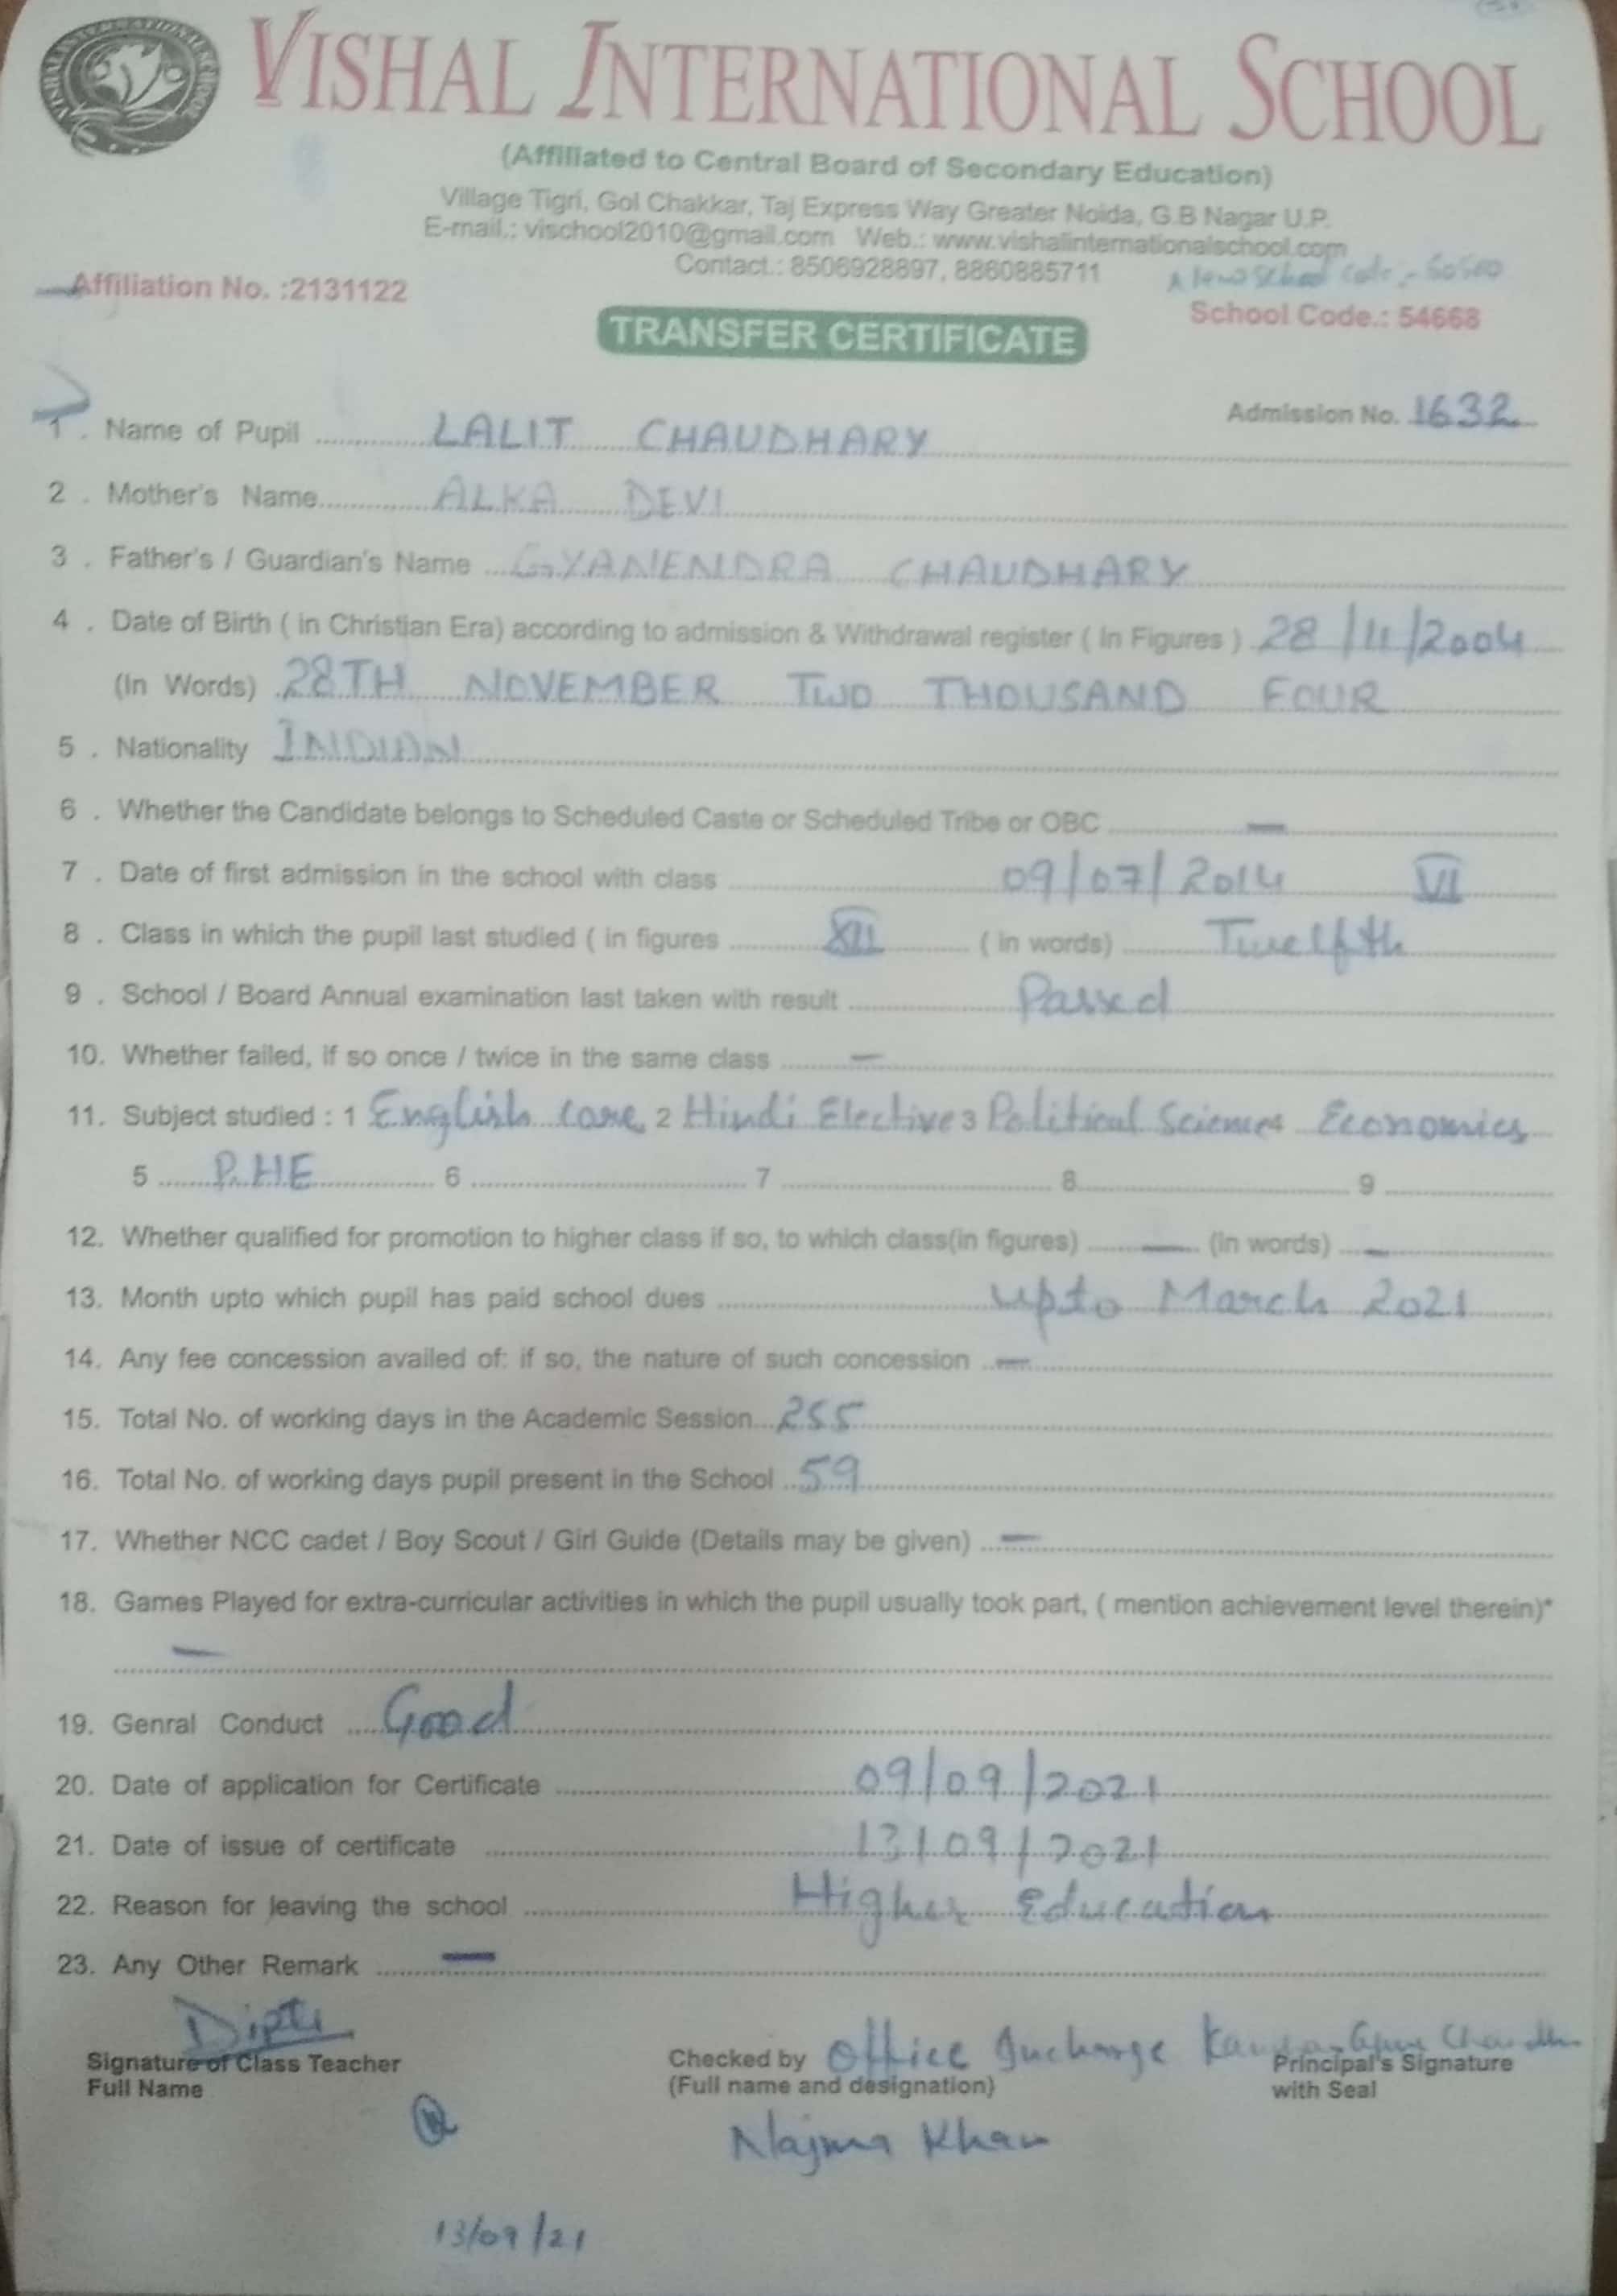 VISHAL INTERNATIONAL SCHOOL
(Affiliated to Central Board of Secondary Education)
Village Tigri, Gol Chakkar, Taj Express Way Greater Noida, G.B Nagar U.P.
E-mail.: vischool2010@gmail.com Web.: www.vishalinternationalschool.com
Contact.: 8506928897, 8860885711
New School code.-
Affiliation No. :2131122
School Code.: 54668
TRANSFER CERTIFICATE
Admission No. 1632
1 . Name of Pupil LALIT CHAUDHARY
2 . Mother's Name ALKA DEVI
3 . Father's / Guardian's Name GYANENDRA CHAUDHARY
4 . Date of Birth ( in Christian Era) according to admission & Withdrawal register ( In Figures ) 28/11/2004
(In Words) 28TH NOVEMBER TWO THOUSAND FOUR
5 . Nationality INDIAN
6 . Whether the Candidate belongs to Scheduled Caste or Scheduled Tribe or OBC —
7 . Date of first admission in the school with class 09/07/2014 VI
8 . Class in which the pupil last studied ( in figures XII ( in words) Twelfth
9 . School / Board Annual examination last taken with result Passed
10. Whether failed, if so once / twice in the same class —
11. Subject studied : 1 English core, 2 Hindi Elective 3 Political Science 4 Economics
5 P.HE 6 7 8 9
12. Whether qualified for promotion to higher class if so, to which class(in figures) — (in words) —
13. Month upto which pupil has paid school dues upto March 2021
14. Any fee concession availed of: if so, the nature of such concession —
15. Total No. of working days in the Academic Session 255
16. Total No. of working days pupil present in the School 59
17. Whether NCC cadet / Boy Scout / Girl Guide (Details may be given) —
18. Games Played for extra-curricular activities in which the pupil usually took part, ( mention achievement level therein)*
—
19. Genral Conduct Good
20. Date of application for Certificate 09/09/2021
21. Date of issue of certificate 13/09/2021
22. Reason for leaving the school Higher Education
23. Any Other Remark —
Dipti
Signature of Class Teacher
Full Name
Checked by Office Incharge
(Full name and designation)
Najma Khan
Principal's Signature
with Seal
13/09/21